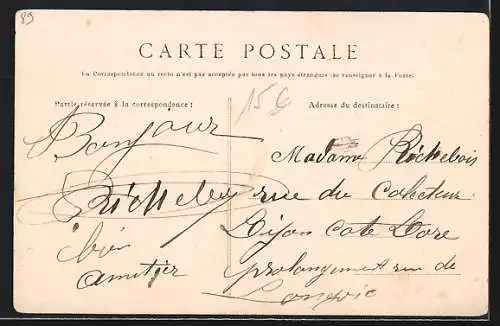 89
CARTE POSTALE
La Correspondance au recto n'est pas acceptée par tous les pays étrangers (se renseigner à la Poste)
Partie réservée à la correspondance :
Adresse du destinataire :
15€
Bonjour
Madame Richebois
Richebois
rue du Colecteur
bien
Dijon Cote Dore
amitier
prolongement rue de
Longvic